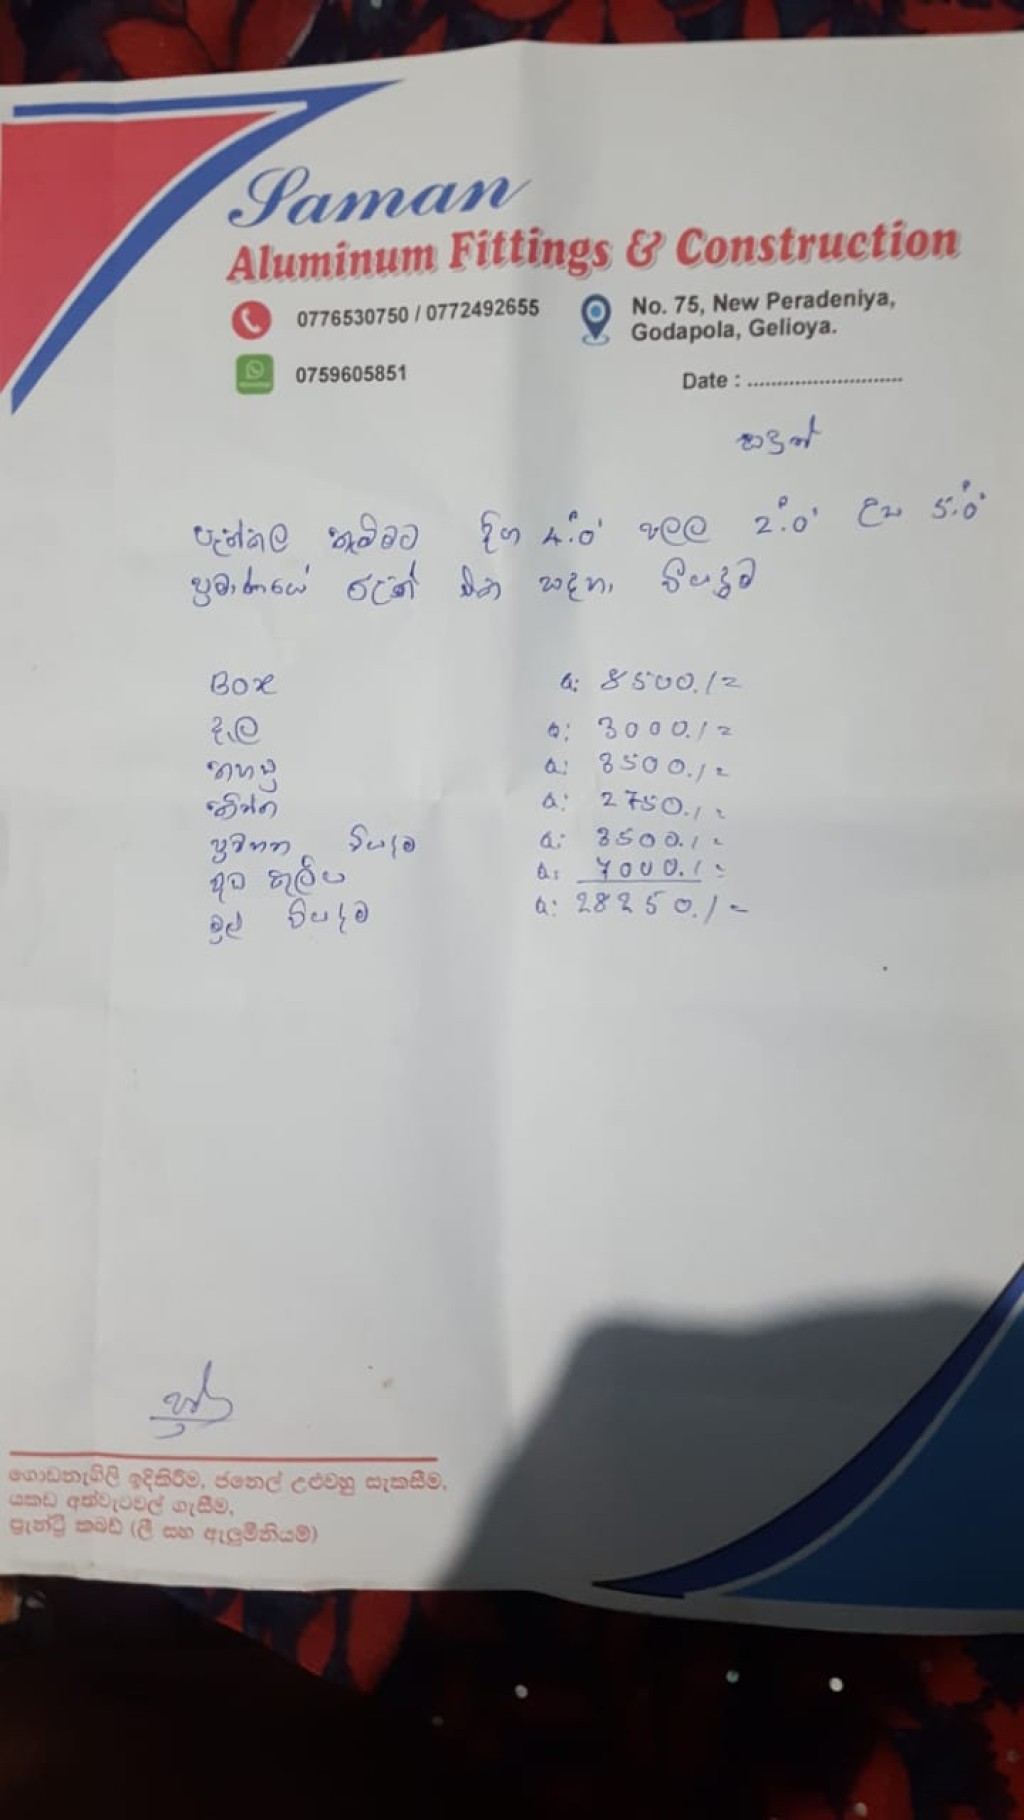 Saman
Aluminum Fittings & Construction
0776530750 / 0772492655
No. 75, New Peradeniya,
Godapola, Gelioya.
0759605851
Date : ..........................
දිග 4.0' පලල 2.0' උස 5.0'
ප්‍රමාණයේ එක සඳහා වියදම
Box 8500./=
දැල 3000./=
තහඩු 3500./=
තීන්ත 2750./=
ප්‍රවාහන වියදම 3500./=
අත් කුලිය 7000./=
මුළු වියදම 28250./=
ගොඩනැගිලි ඉදිකිරීම, ජනෙල් උළුවහු සැකසීම,
යකඩ අත්වැටවල් ගැසීම,
ප්‍රැන්ට්‍රි කබඩ් (ලී සහ ඇලුමීනියම්)